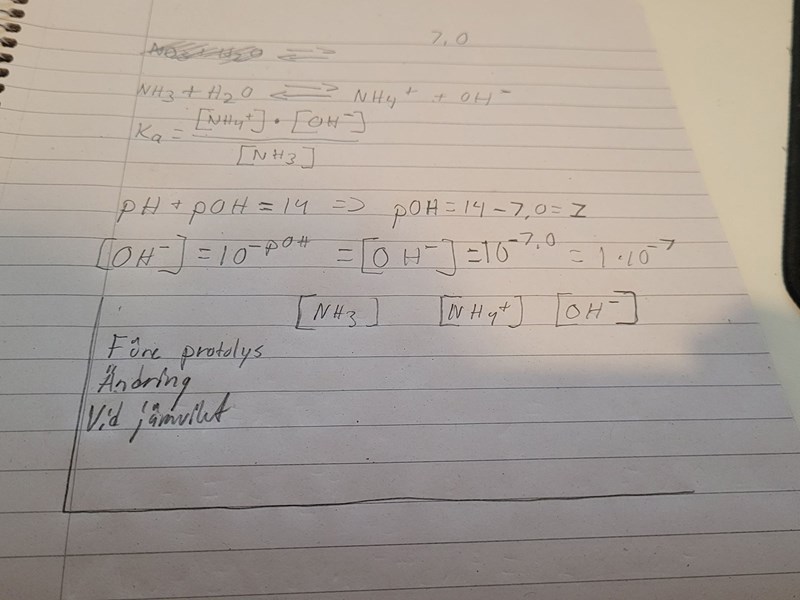 7,0
NO3 + H2O ⇌
NH3 + H2O ⇌ NH4+ + OH-
Ka = [NH4+] • [OH-]
[NH3]
pH + pOH = 14 => pOH = 14 - 7,0 = 7
[OH-] = 10^-pOH = [OH-] = 10^-7,0 = 1·10^-7
[NH3] [NH4+] [OH-]
Före protolys
Ändring
Vid jämvikt